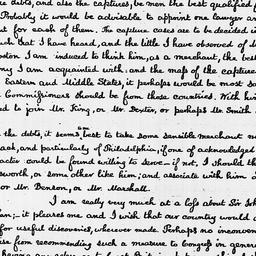 debts, and also the captures, be men the best qualified f
Probably it would be advisable to appoint one lawyer an
t for each of them. The capture cases are to be decided i
ch that I have heard, and the little I have observed of M
oston I am induced to think him, as a merchant, the best
ny I am acquainted with; and the map of the capture
Eastern and Middle States, it perhaps would be most sa
Commissioners should be from those countries. With hi
ed to join Mr. King, or Mr. Dexter, or perhaps Mr. Smith
the debts, it seems best to take some sensible merchant
ack, and particularly of Philadelphia; if one of acknowledged
acter could be found willing to serve—if not, I should th
sworth, or some other like him; and associate with him
or Mr. Benson, or Mr. Marshall.
I am really very much at a loss about Sir Joh
an;—it pleases me and I wish that our country would
for useful discoveries, wherever made. Perhaps no inconven
se from recommending such a measure to Congress in gener